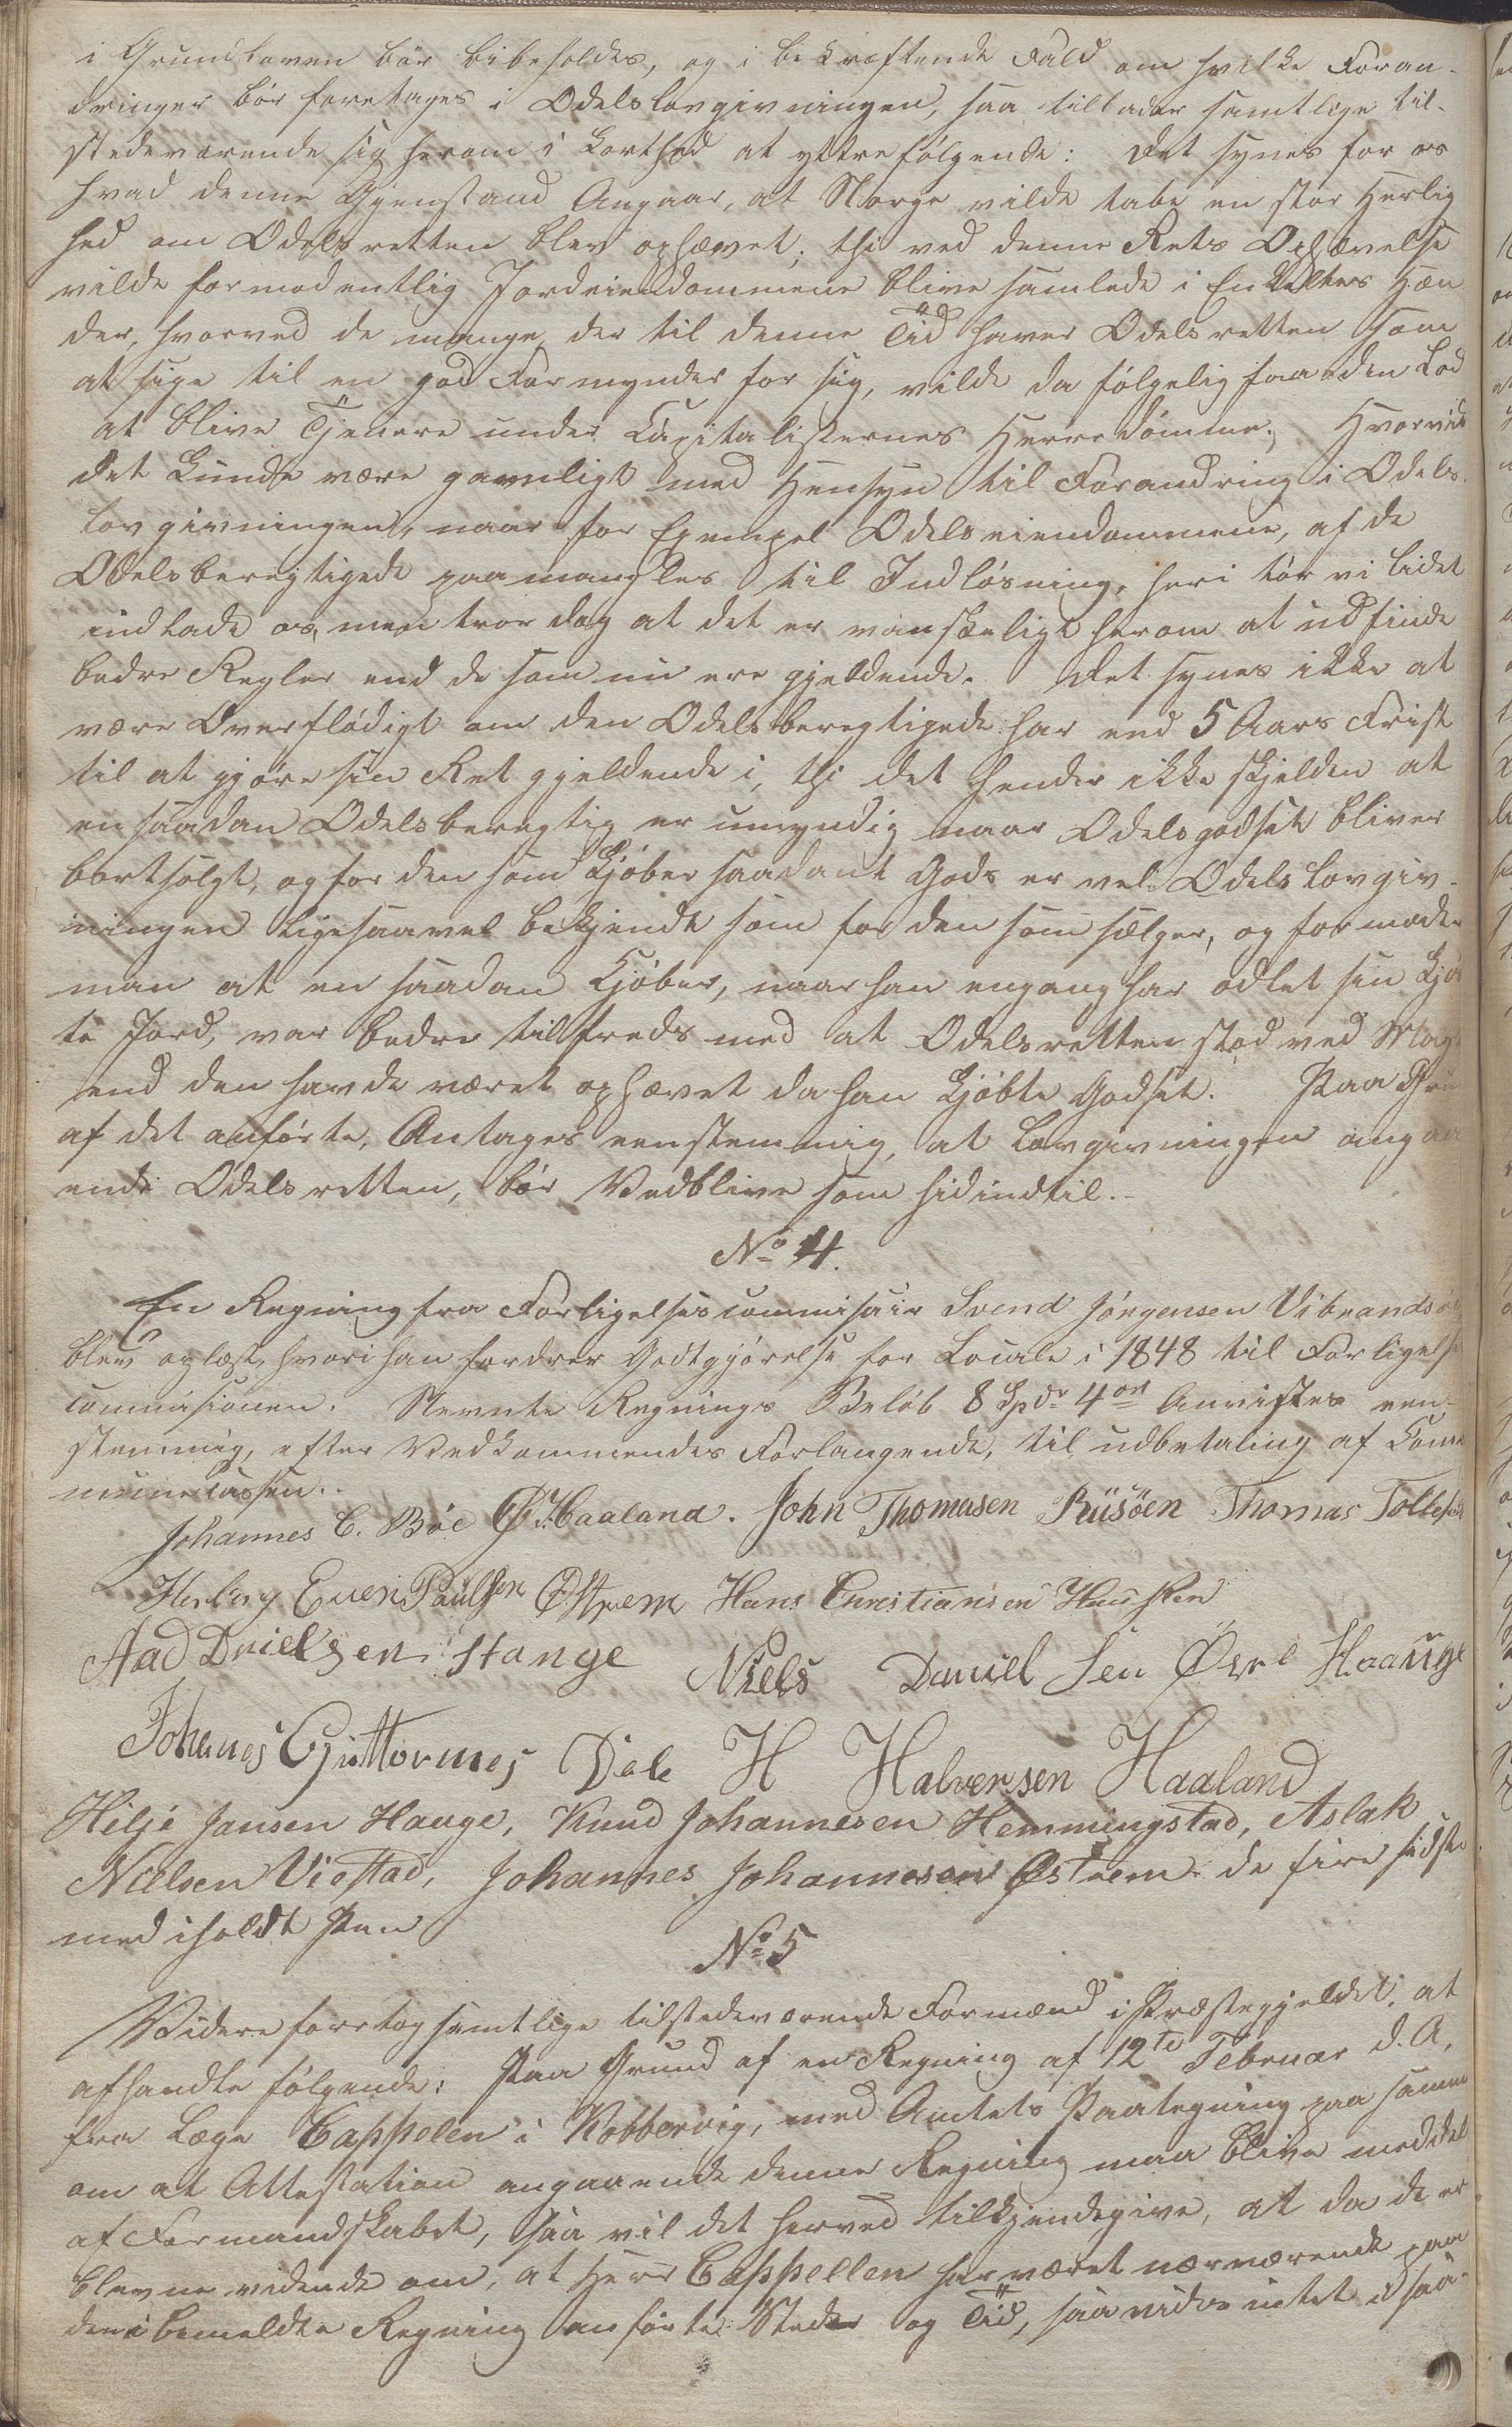 i Grundloven bör bibeholdes, og i bekræftende Fald om hvilke Foran-
dringer bör foretages i Odelslovgivningen, saa tillader samtlige til-
stedeværende sig herom i Korthed at yttre fölgende: Det synes for os
hvad denne Gjenstand Angaar, at Norge vilde tabe en stor Herlig
hed om Odelsretten blev ophævet; thi ved denne Rets Ophævelse
vilde formodentlig Jordeiendommene blive samlede i Enkeltes Hæn
der, hvorved de mange, der til denne Tid haver Odelsretten som
at sige til en god Formynder for sig, vilde da fölgelig faa den Lod
at blive Tjenere under Capitalisternes Herredömme; Hvorvidt
det kunde være gavnligt med Hensyn til Forandring i Odels-
lovgivningen, naar for Exempel Odelseiendommene, af de
Odelsberegtigede paamangles til Indlösning, heri tör vi lidet
indlade os, men tror dog at det er vanskeligt herom at udfinde
bedre Regler end de som nu ere gjeldende. Det synes ikke at
være Overflödigt om den Odelsberegtigede har end 5 Aars Frist
til at gjöre sin Ret gjeldende i, thi det hender ikke skjelden at
en saadan Odelsberegtig er umyndig naar Odelsgodset bliver
bortsolgt, og for den som Kjöber saadant Gods er vel Odelslovgiv-
ningen ligesaavel bekjendt som for den som sælger, og formoder
man at en saadan Kjöber, naar han engang har odlet sin Kjöb
te Jord, var bedre tilfreds med at Odelsretten stod ved Magt
end den havde været ophævet da han Kjöbte Godset. Paa Grund
af det anförte, Antages eenstemmig, at Lovgivningen angaa
ende Odelsretten, bör Vedblive som hidindtil.-
No 4.
En Regning fra Forligelsescommisair Svend Jörgensen Vibrandsöe
blev oplæst, hvori han fordrer Godtgjörelse for Locale i 1848 til Forligelses
commisionen. Nevnte Regnings Belöb 8 Spdr 4 ort Anvistes een-
stemmig, efter Vedkommendes Forlangende, til udbetaling af Com
munecassen..
Johannes C. Böe O. Haaland. John Thomasen Riisöen Thomas Tollefsen
Evert Paulsen Østrem Hans Cunistiansen Hausken
Aad Dnielsen Stange Niels Daniel Sen Haauge
Johanes Guttormes Dale H Halversen Haaland
Hilje Jansen Hauge, Knud Johannesen Hemmingstad, Aslak
Nielsen Viestad, Johannes Johannesen Østrem. de fire sidste
med iholdt Pen
No 5
Videre foretog samtlige tilstedeværende Formænd i Præstegjeldet, at
afhandle fölgende: Paa Grund af en Regning af 12te Februar d. A,
fra Læge Cappelen i Kobbervig, med Amtets Paategning paa samme
om at Attestation angaaende denne Regning maa blive meddelt
af Formandskabet, saa vil det herved tilkjendegive, at da de er
blevne vidende om, at Herr Cappellen har været nærværende paa
den i bemeldte Regning anförte Steder og Tid, saa vides intet i saa-